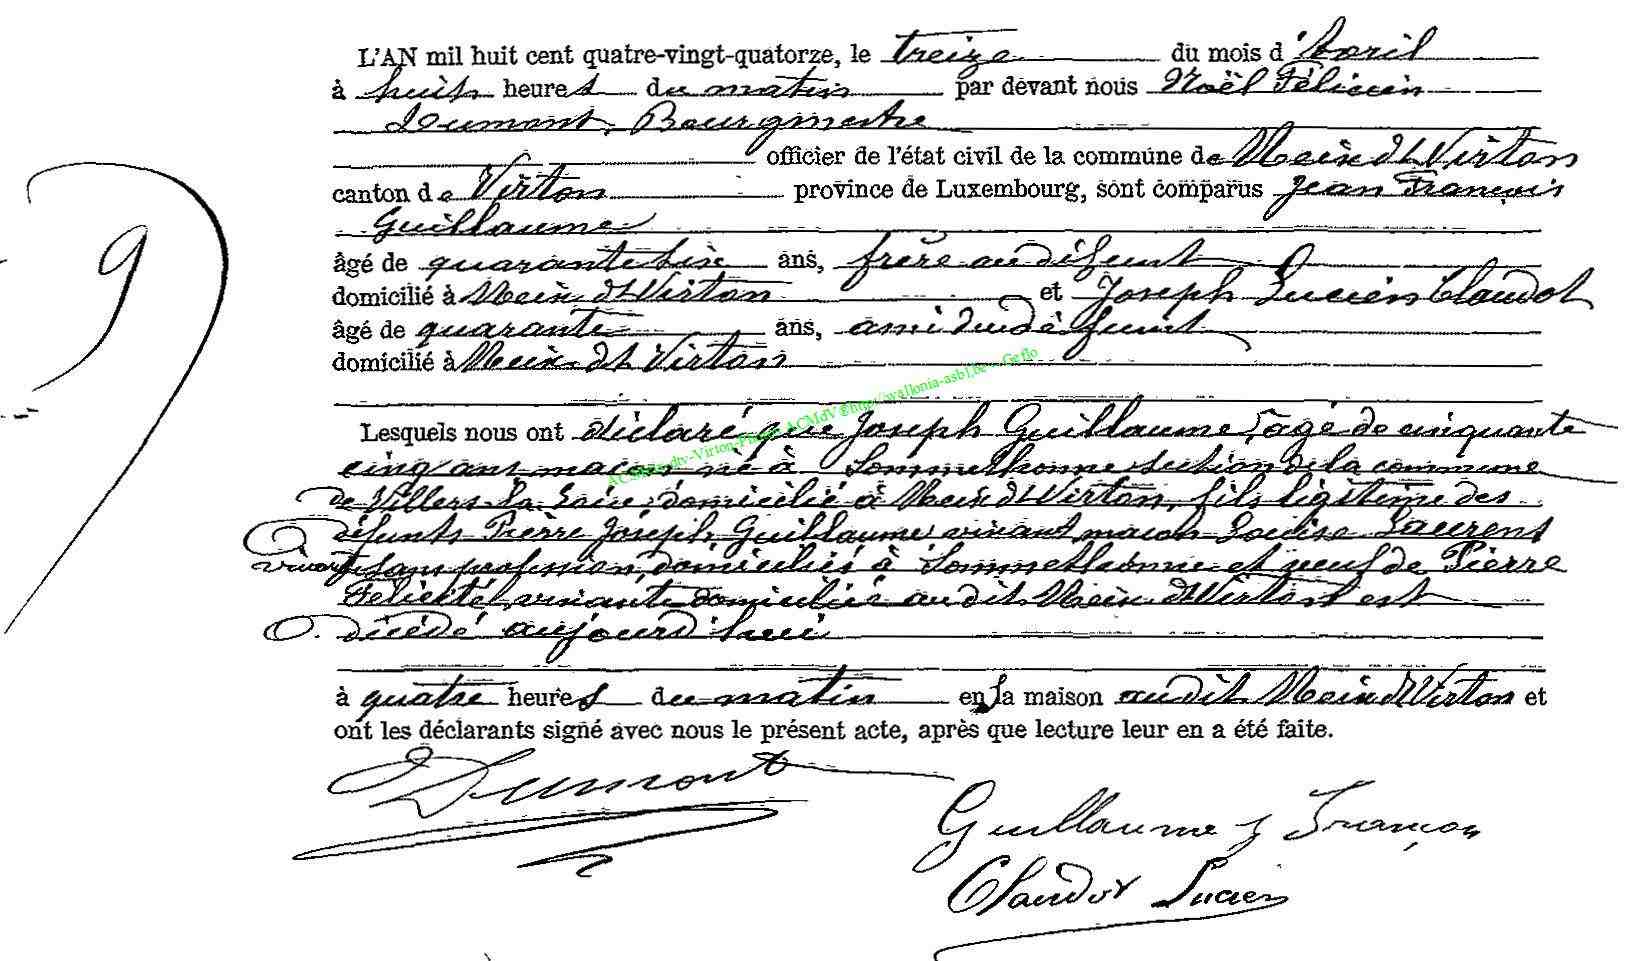 L'AN mil huit cent quatre-vingt-quatorze, le treize du mois d'Avril
à huit heures du matin par devant nous Noël Félicien
Dumont, Bourgmestre
officier de l'état civil de la commune de Meix dt Virton
canton de Virton province de Luxembourg, sont comparus Jean François
Guillaume
âgé de quarante six ans, frère au défunt
domicilié à Meix dt Virton et Joseph Lucien Claudot
âgé de quarante ans, ami du défunt
domicilié à Meix dt Virton
Lesquels nous ont déclaré que Joseph Guillaume, âgé de cinquante
cinq ans maçon né à Sommethonne section de la commune
de Villers la Loue, domicilié à Meix dt Virton, fils légitime des
défunts Pierre Joseph Guillaume vivant maçon Louise Laurent
vivant sans profession, domiciliés à Sommethonne et veuf de Pierre
Félicité, vivante domiciliée au dit Meix dt Virton est
décédé aujourd'hui
à quatre heures du matin en sa maison au dit Meix dt Virton et
ont les déclarants signé avec nous le présent acte, après que lecture leur en a été faite.
Dumont
Guillaume J François
Claudot Lucien
9